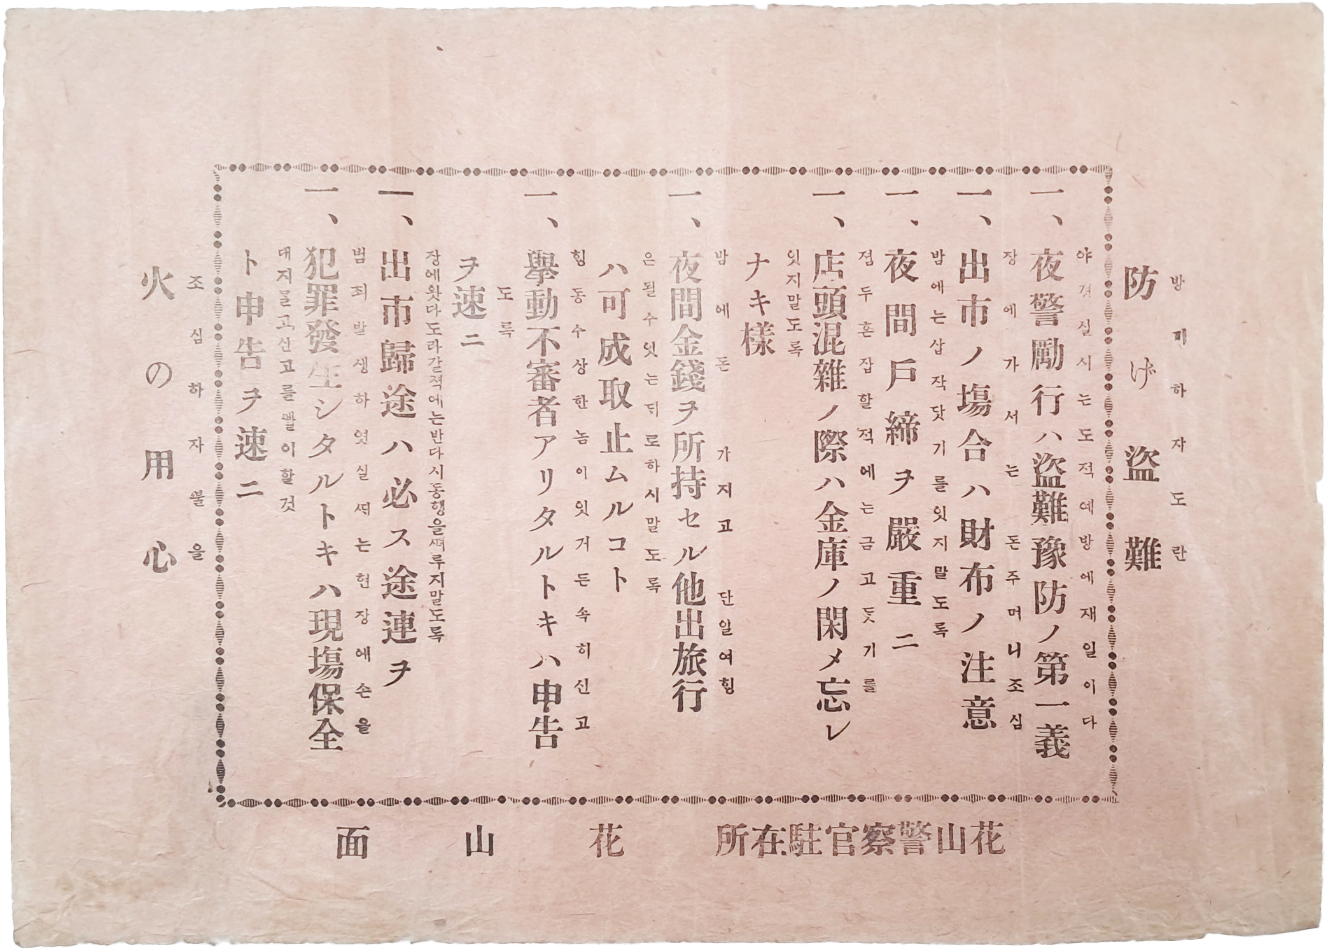 방끼하자도란
防げ盜難
야경실시는도적예방에재일이다
一、夜警勵行ハ盜難豫防ノ第一義
장에가서는돈주머니조심
一、出市ノ塲合ハ財布ノ注意
밤에는삽작닷기를잇지말도록
一、夜間戶締ヲ嚴重ニ
졈두혼잡할적에는금고둣기를
一、店頭混雜ノ際ハ金庫ノ閑メ忘レ
잇지말도록
ナキ樣
밤에돈가지고단일여힝
一、夜間金錢ヲ所持セル他出旅行
은될수잇는디로하시말도록
ハ可成取止ムルコト
힝동수상한놈이잇거든속히신고
一、擧動不審者アリタルトキハ申告
도록
ヲ速ニ
장에왓다도라갈적에는반다시동행을써루지말도록
一、出市歸途ハ必ス途連ヲ
범죄발생하엿실때는현장에손을
一、犯罪發生シタルトキハ現塲保全
대지몰고신고를빨이할것
ト申告ヲ速ニ
조심하자불을
火の用心
花山警察官駐在所
花山面